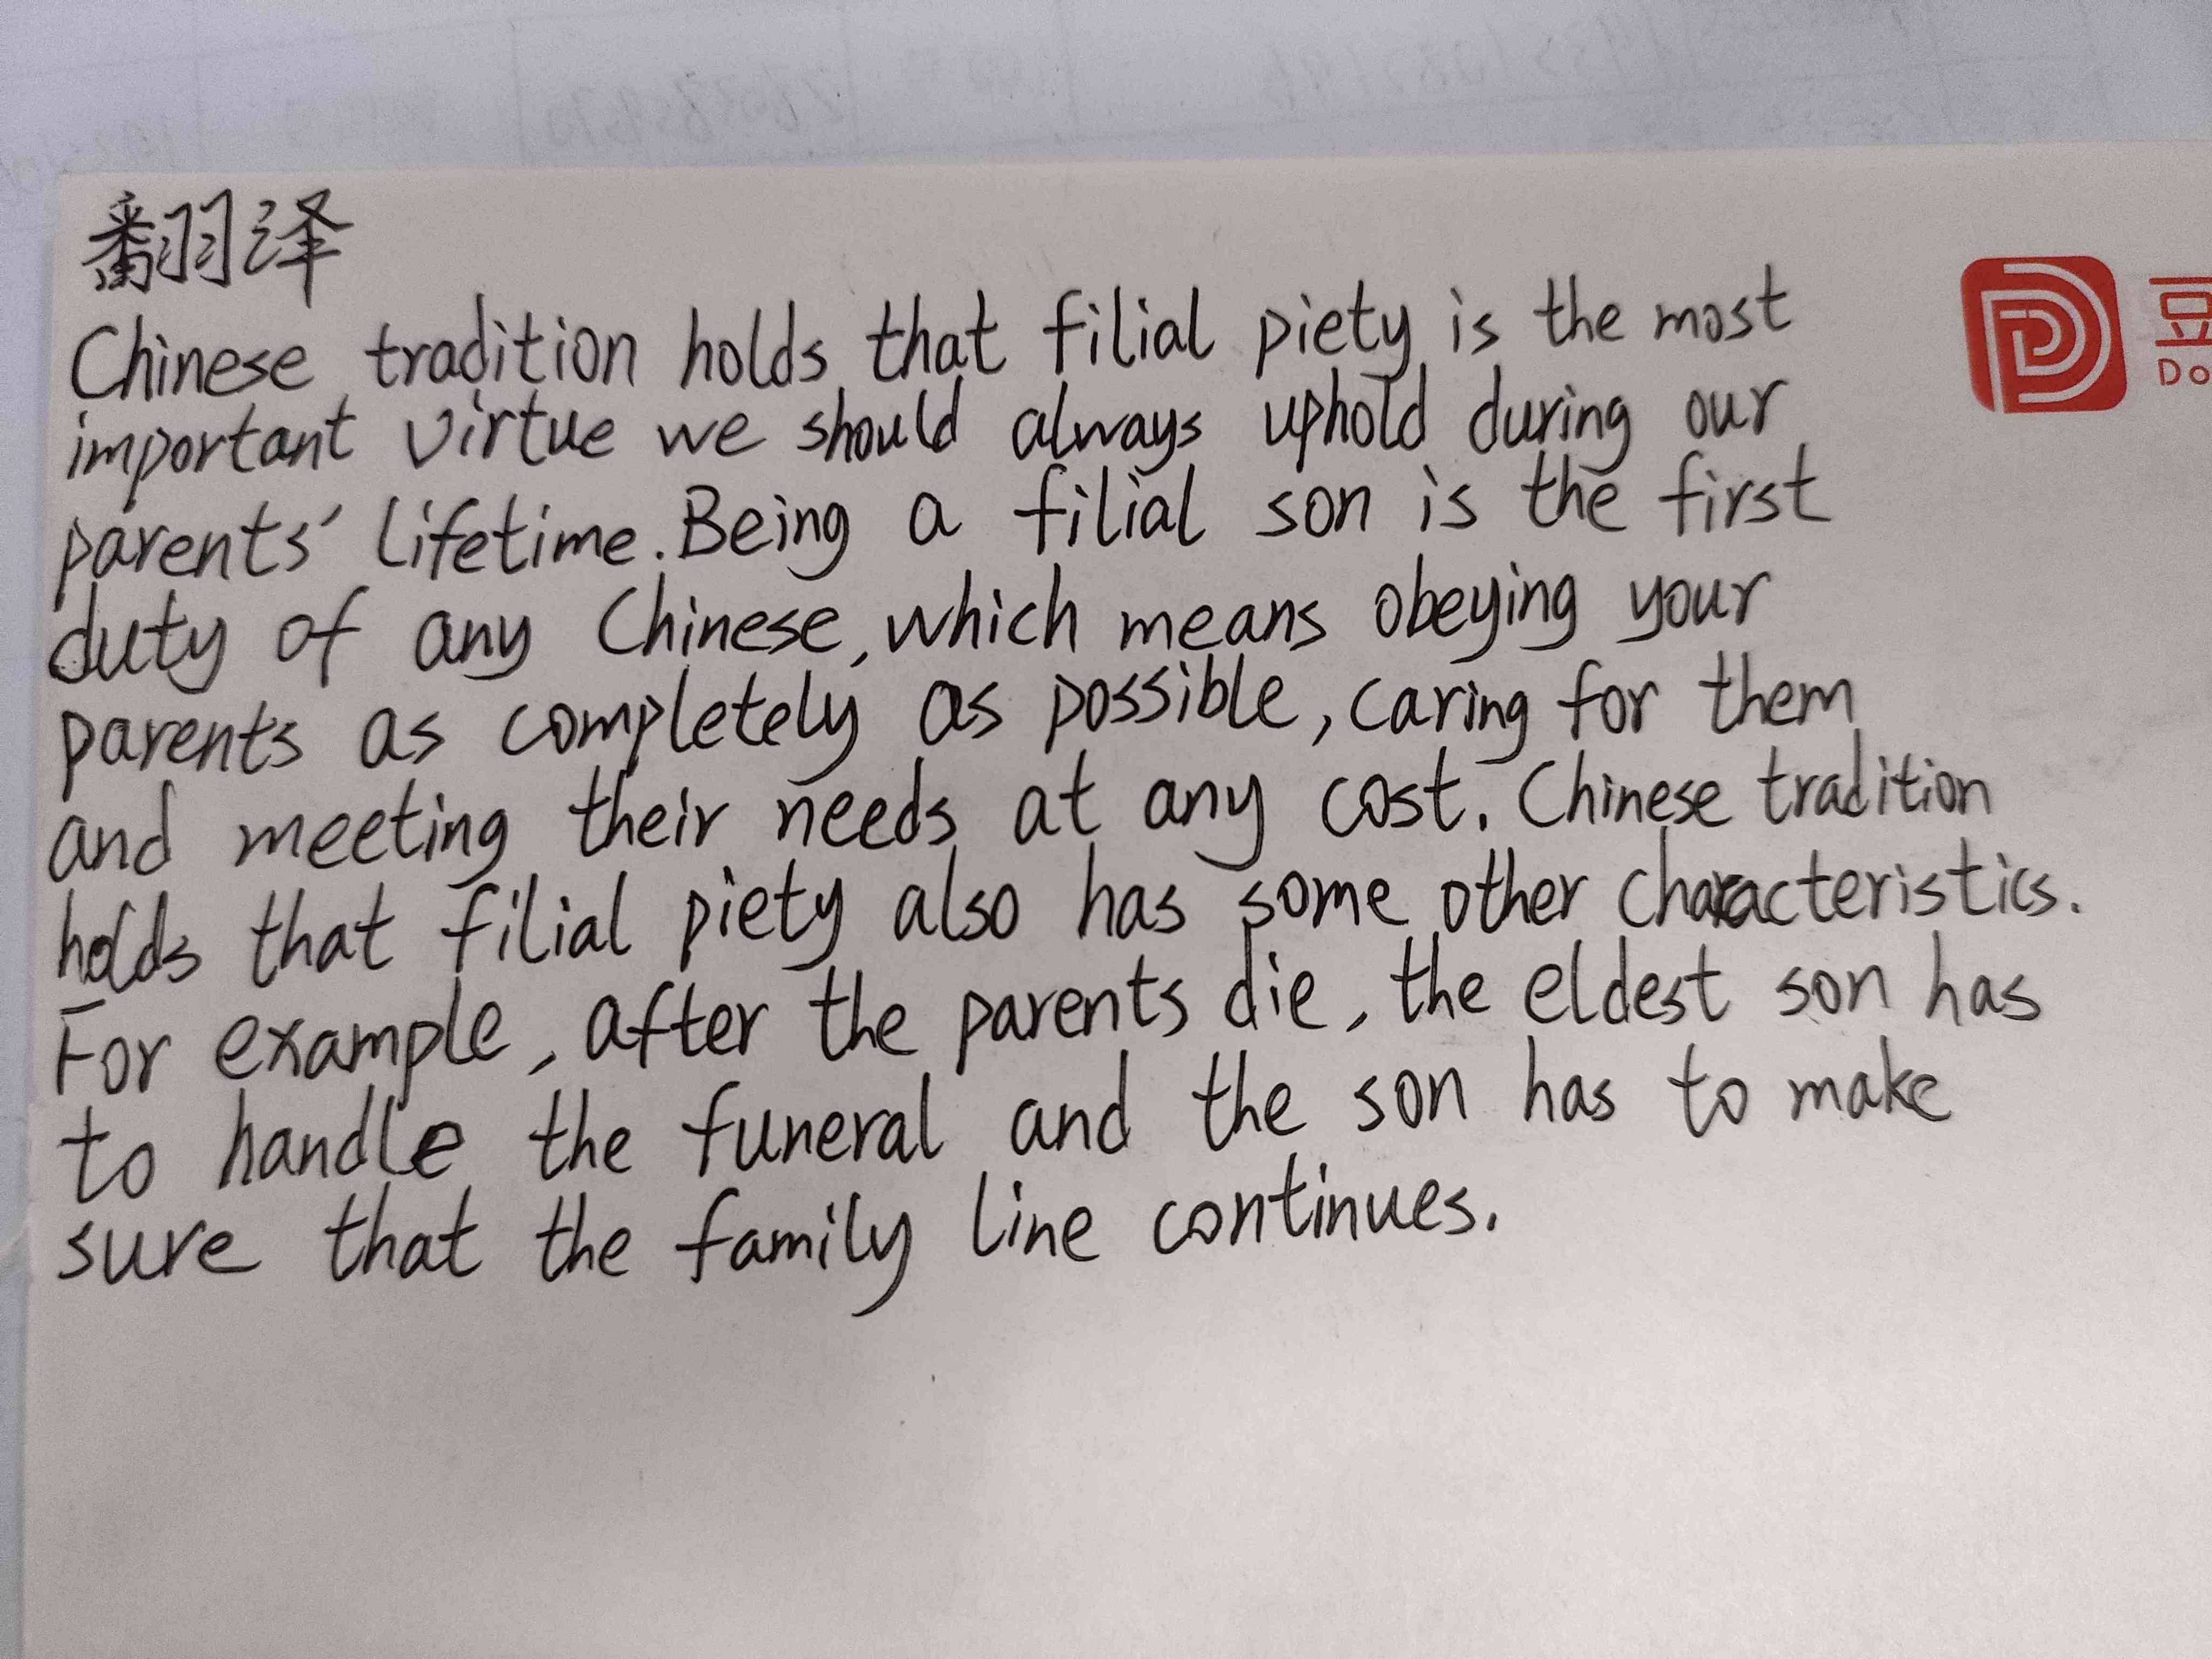 翻译
Chinese tradition holds that filial piety is the most
important virtue we should always uphold during our
parents' lifetime. Being a filial son is the first
duty of any Chinese, which means obeying your
parents as completely as possible, caring for them
and meeting their needs at any cost. Chinese tradition
holds that filial piety also has some other characteristics.
For example, after the parents die, the eldest son has
to handle the funeral and the son has to make
sure that the family line continues.
豆
Do